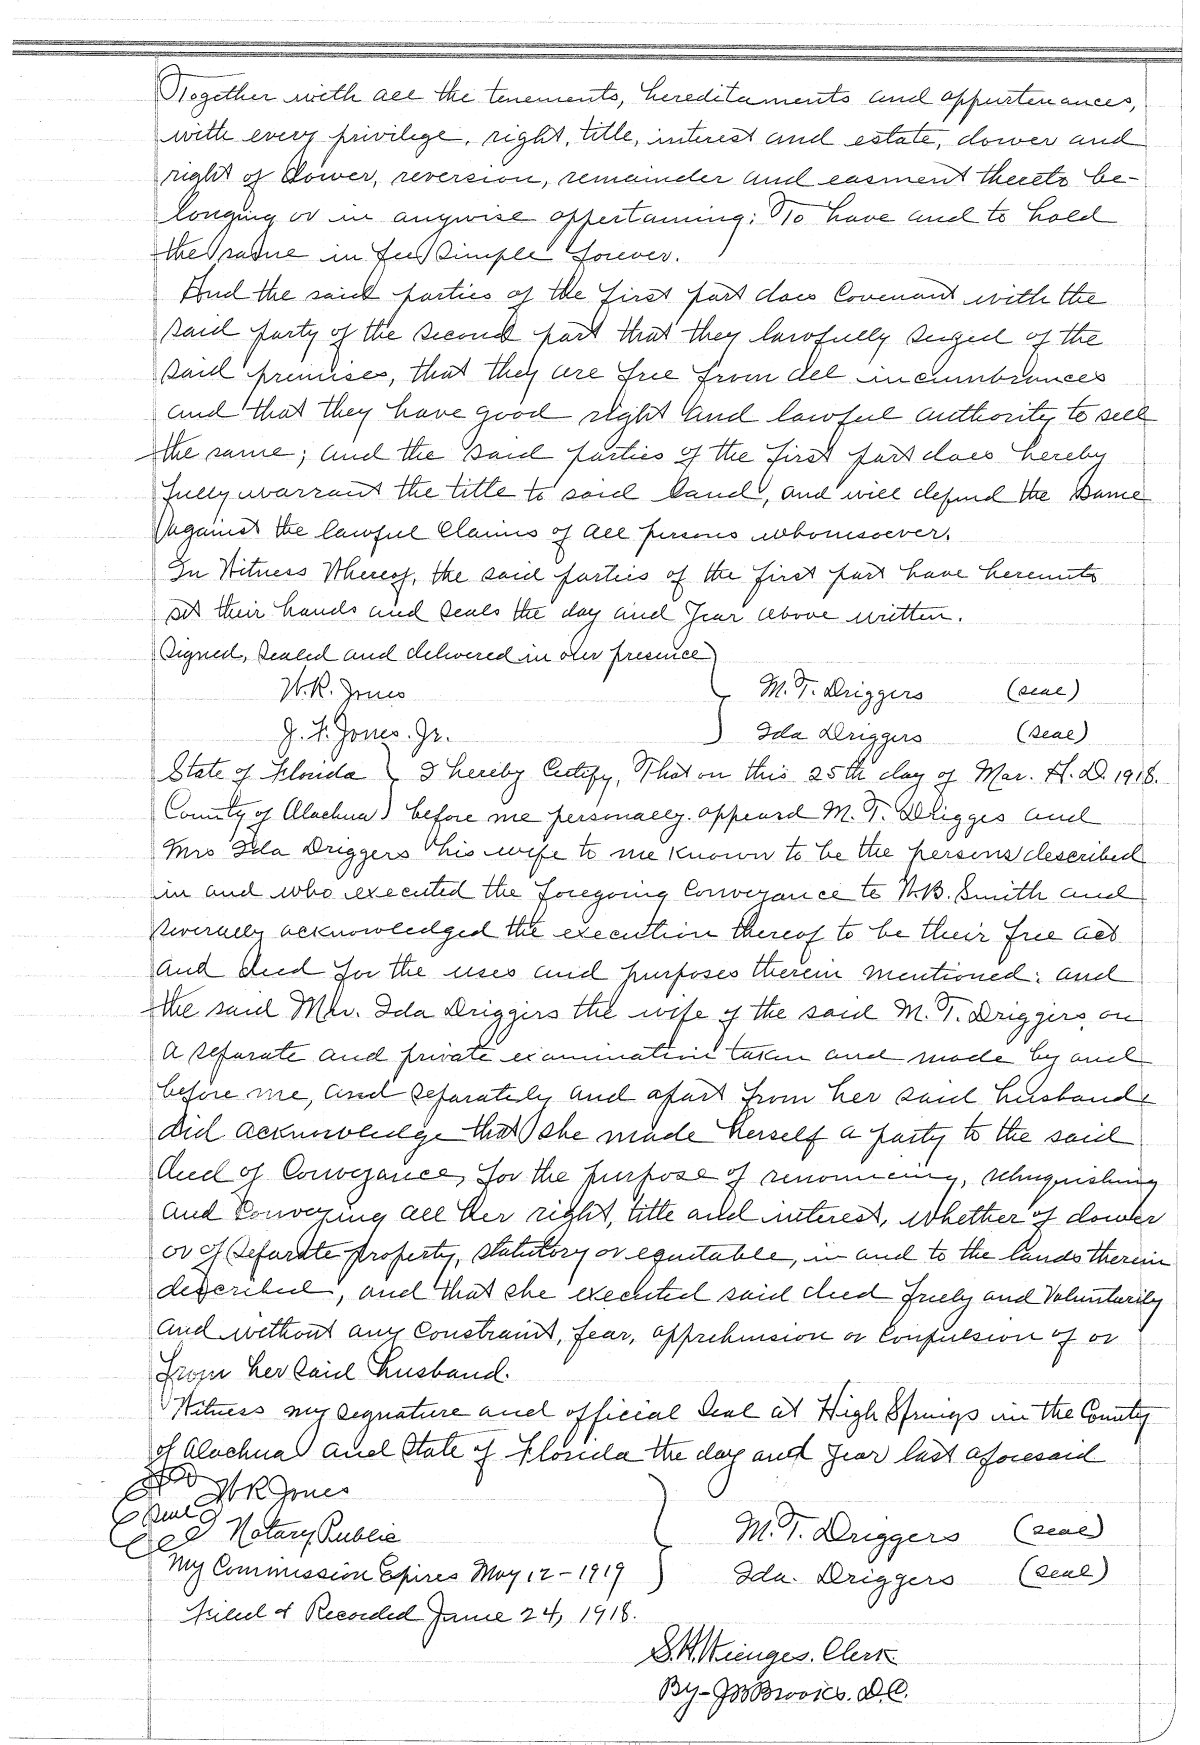 Together with all the tenements, hereditaments and appurtenances,
with every privilege, right, title, interest and estate, dower and
right of dower, reversion, remainder and easment thereto be-
longing or in anywise appertaining: To have and to hold
the same in fee simple forever.
And the said parties of the first part does Covenant with the
said party of the second part that they lawfully seized of the
said premises, that they are free from all incumbrances
and that they have good right and lawful authority to sell
the same; and the said parties of the first part does hereby
fully warrant the title to said land, and will defend the same
against the lawful Claims of all persons whomsoever.
In Witness Whereof, the said parties of the first part have hereunto
set their hands and seals the day and year above written.
Signed, sealed and delivered in our presence
W.R. Jones M. T. Driggers (seal)
J. F. Jones. Jr. Ida Driggers (seal)
State of Florida I hereby Certify, That on this 25th day of Mar. A.D. 1918.
County of Alachua before me personally appeard M. T. Driggers and
Mrs Ida Driggers his wife to me known to be the persons described
in and who executed the foregoing Conveyance to W.B. Smith and
severally acknowledged the execution thereof to be their free act
and deed for the uses and purposes therein mentioned: and
the said Mrs. Ida Driggers the wife of the said M. T. Driggers, on
a separate and private examination taken and made by and
before me, and separately and apart from her said husband
did acknowledge that she made herself a party to the said
deed of Conveyance, for the purpose of renouncing, relinquishing
and Conveying all her right, title and interest, whether of dower
or of separate property, statutory or equitable, in and to the lands therein
described, and that she executed said deed freely and Voluntarily
and without any Constraint, fear, apprehension or Compulsion of or
from her said husband.
Witness my signature and official seal at High Springs in the County
of Alachua and State of Florida the day and year last aforesaid
W R Jones
Seal
Notary Public M. T. Driggers (seal)
My Commission Expires May 12-1919 Ida. Driggers (seal)
Filed & Recorded June 24, 1918.
S.H. Wienges. Clerk
By- JB Brooks. D.C.